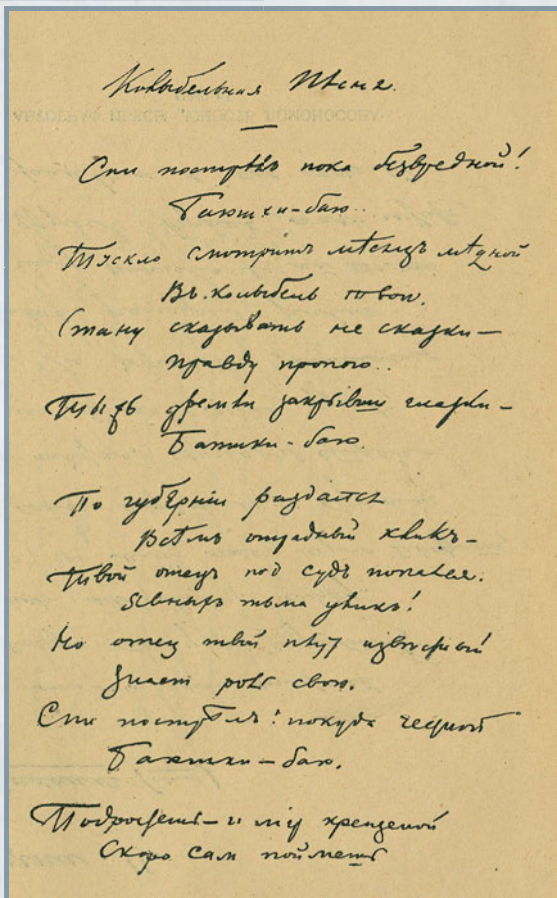 Колыбельная Песня.
Спи пострѣлъ пока безвредной!
Баюшки-баю..
Тускло смотритъ мѣсяцъ мѣдной
Въ колыбель твою.
Стану сказывать не сказки —
Правду пропою..
Ты жъ дремли закрывши глазки —
Баюшки-баю.
По губерніи раздался
Всѣмъ отрадный кликъ —
Твой отецъ под судъ попался.
Явныхъ тьма уликъ!
Но отец твой плут извѣстный
Знает роль свою.
Спи пострѣлъ! покуда честной
Баюшки — баю.
Подростешь — и міръ крещеной
Скоро сам поймешь